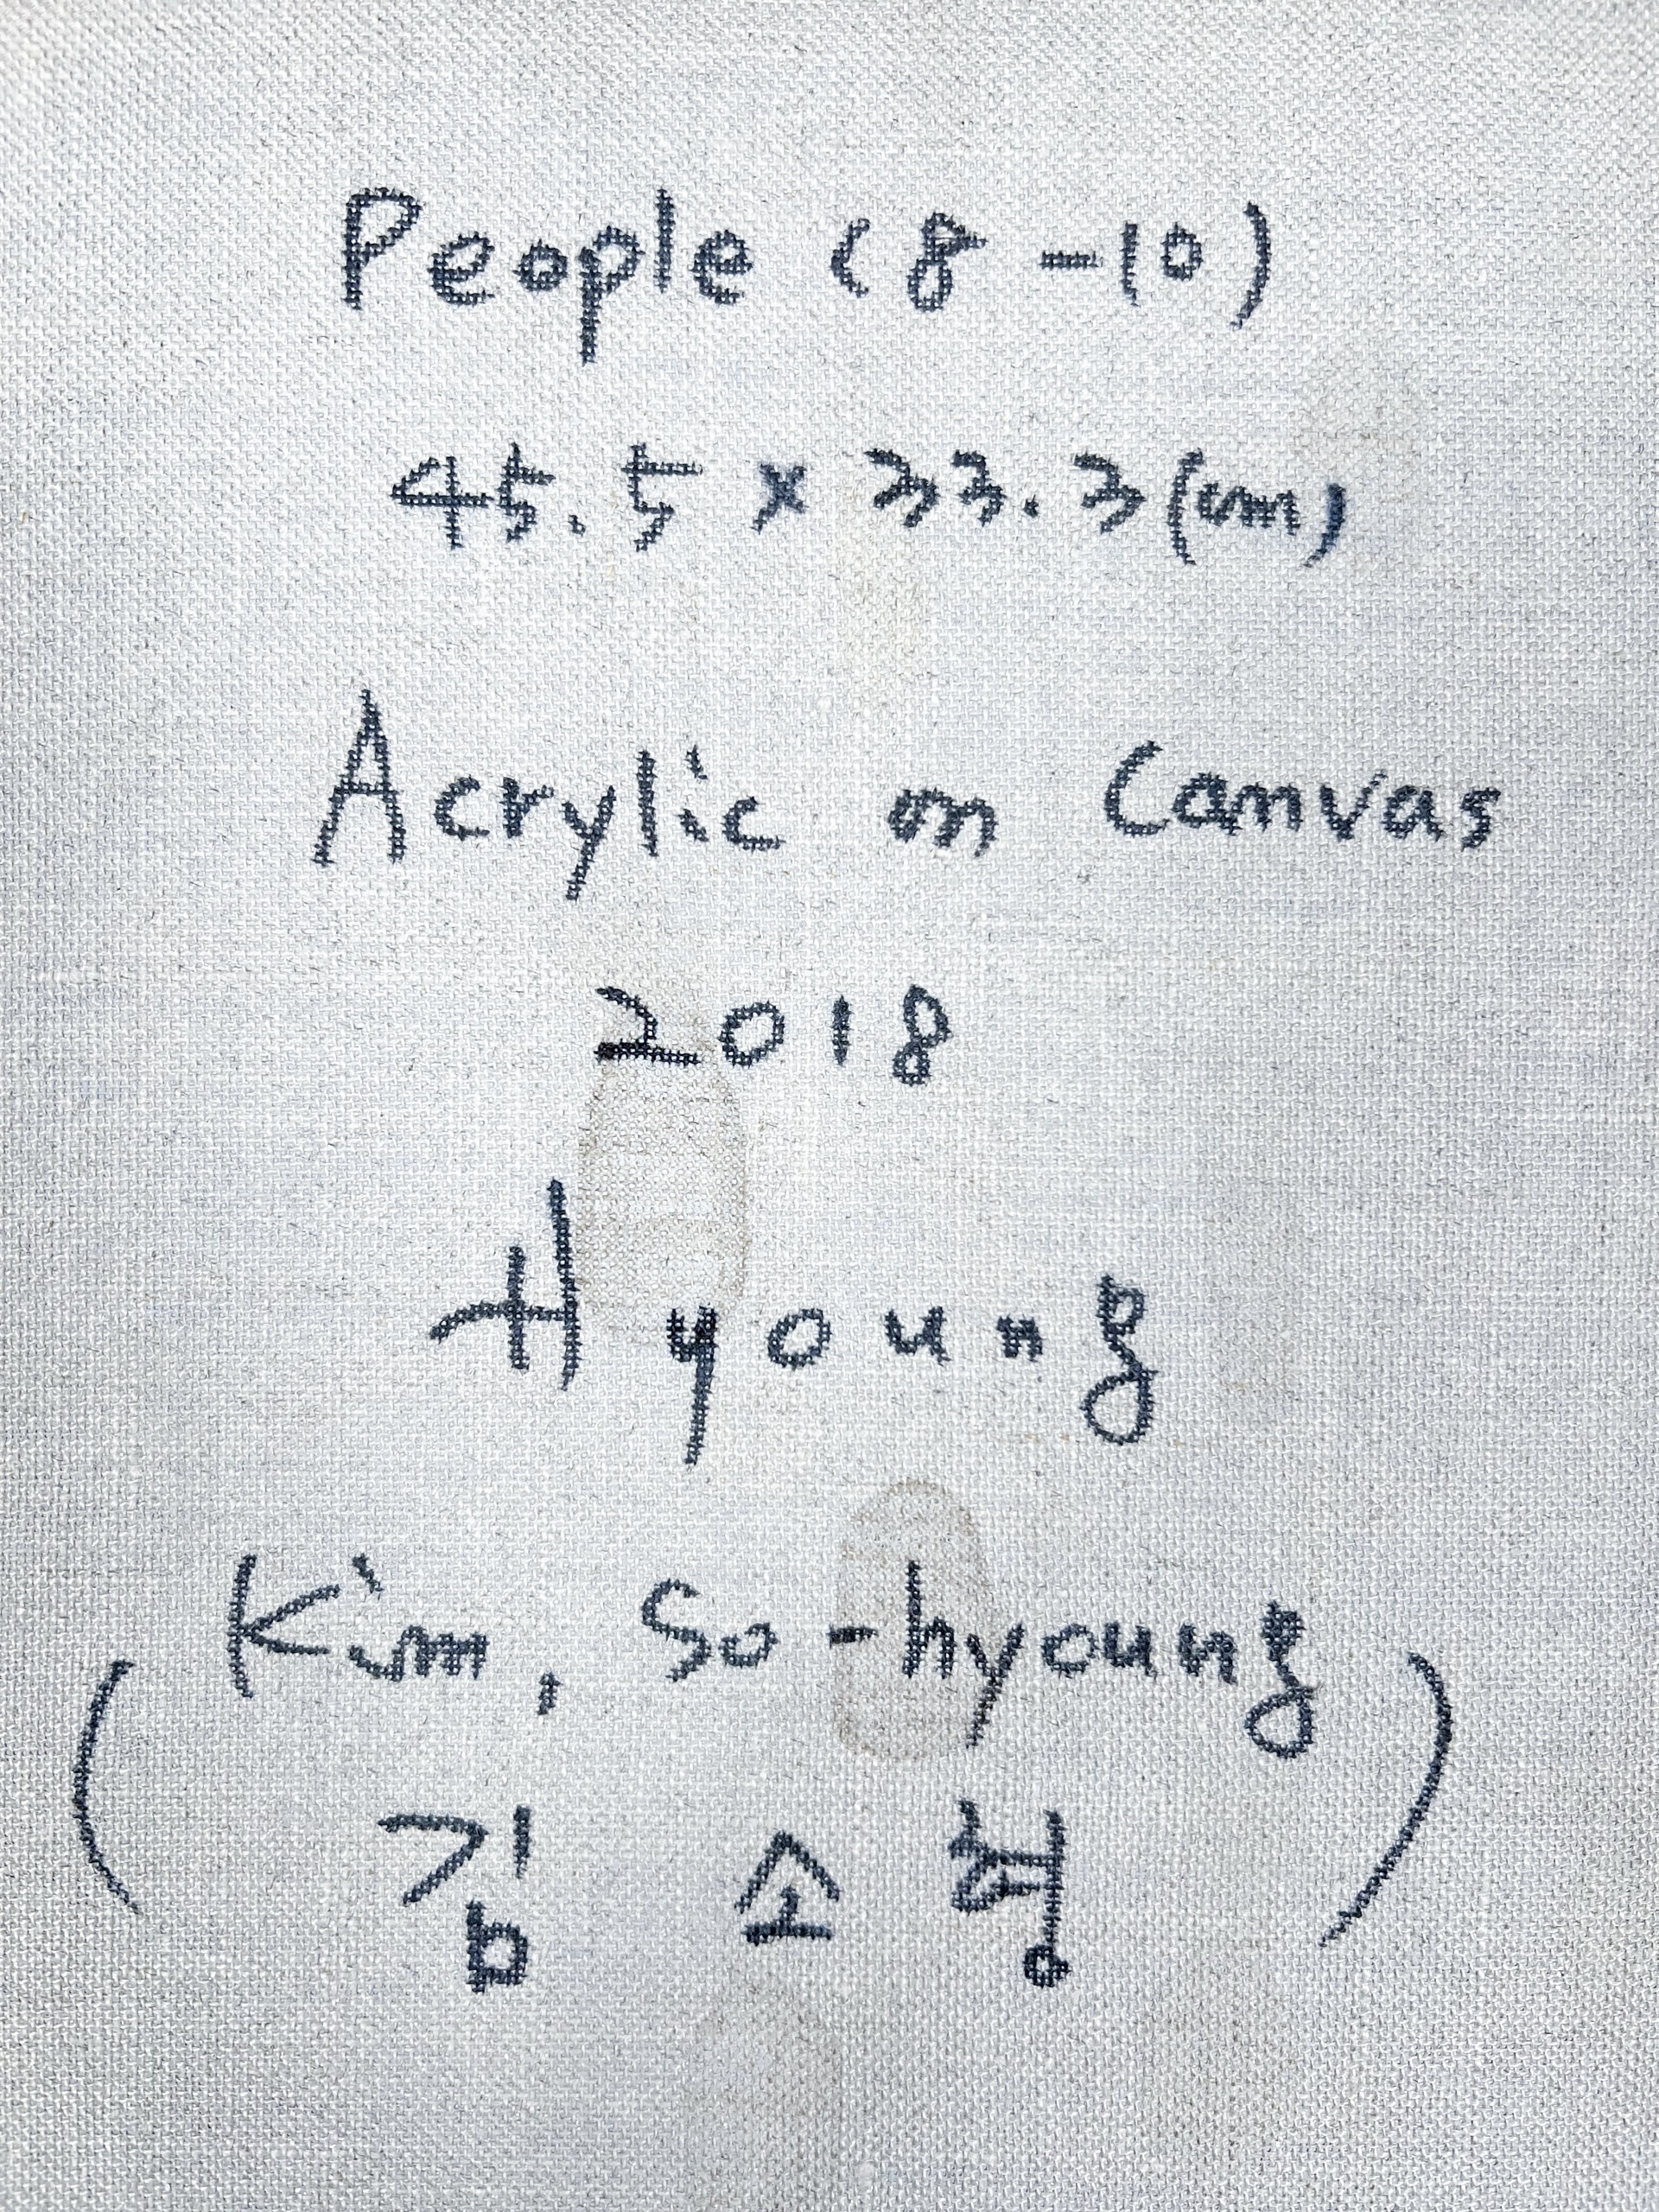 People (8-10)
45.5 × 33.3(cm)
Acrylic on Canvas
2018
Hyoung
(Kim, So-hyoung
김 소 형)